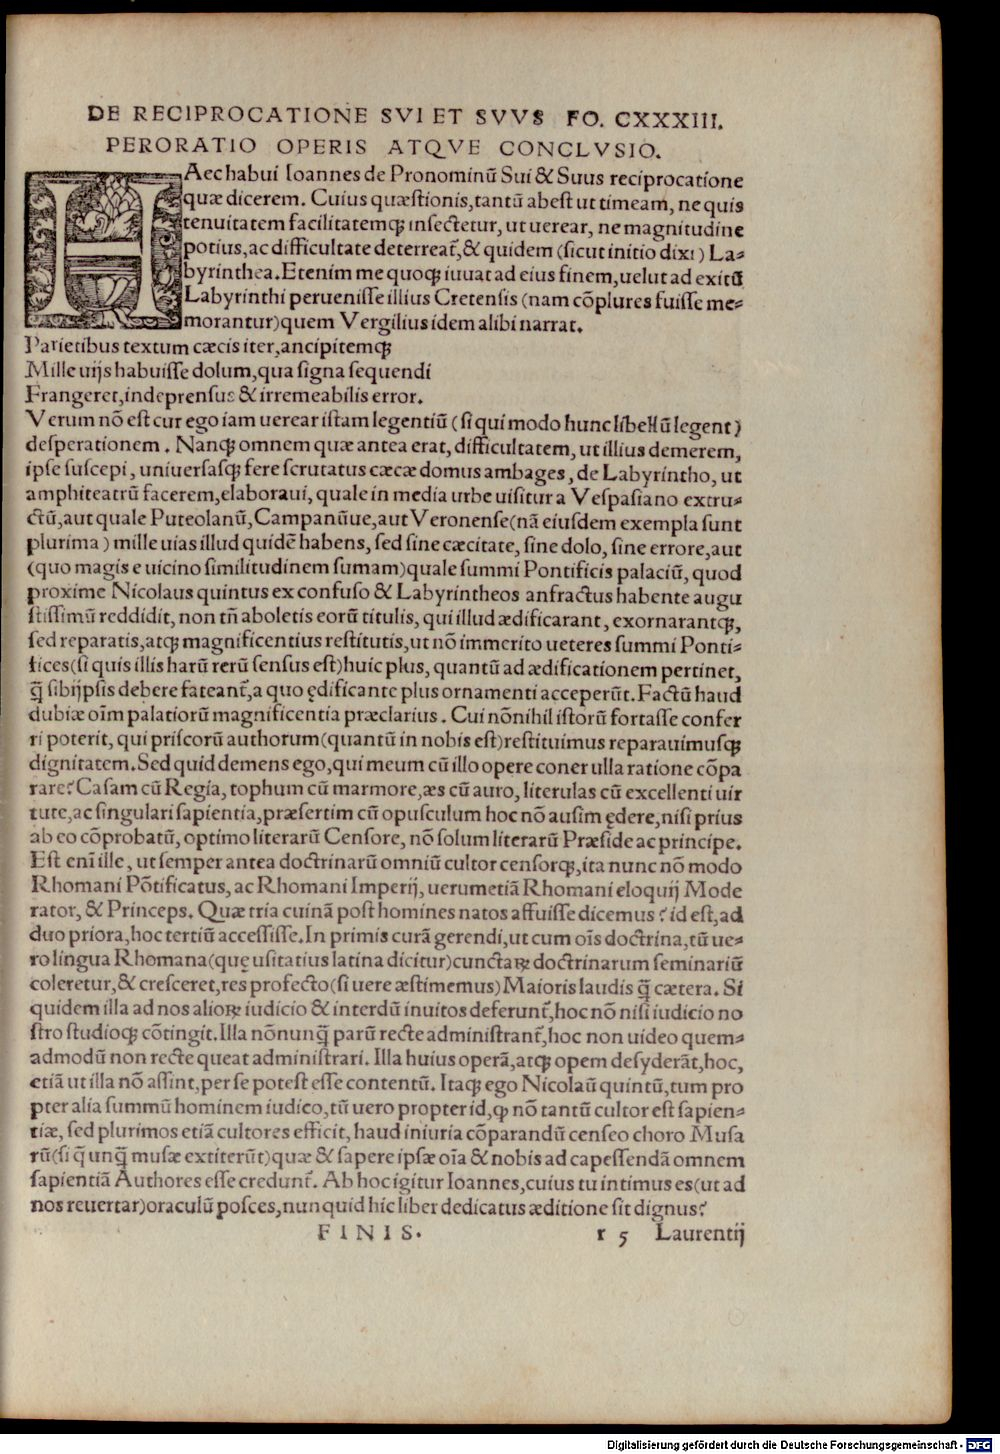 DE RECIPROCATIONE SVI ET SVVS FO. CXXXIII.
PERORATIO OPERIS ATQVE CONCLVSIO.
HAec habui Ioannes de Pronominū Sui & Suus reciprocatione
quæ dicerem. Cuius quæstionis, tantū abest ut timeam, ne quis
tenuitatem facilitatemqꝫ insectetur, ut uerear, ne magnitudine
potius, ac difficultate deterreat᷑, & quidem (sicut initio dixi) La⸗
byrinthea. Etenim me quoqꝫ iuuat ad eius finem, uelut ad exitū
Labyrinthi peruenisse illius Cretensis (nam cōplures fuisse me⸗
morantur) quem Vergilius idem alibi narrat.
Parietibus textum cæcis iter, ancipitemqꝫ
Mille uijs habuisse dolum, qua signa sequendi
Frangeret, indeprensus & irremeabilis error.
Verum nō est cur ego iam uerear istam legentiū (si qui modo hunc libellū legent)
desperationem. Nanqꝫ omnem quæ antea erat, difficultatem, ut illius demerem,
ipse suscepi, uniuersasqꝫ fere scrutatus cæcæ domus ambages, de Labyrintho, ut
amphiteatrū facerem, elaboraui, quale in media urbe uisitur a Vespasiano extru⸗
ctū, aut quale Puteolanū, Campanūue, aut Veronense (nā eiusdem exempla sunt
plurima) mille uias illud quidē habens, sed sine cæcitate, sine dolo, sine errore, aut
(quo magis e uicino similitudinem sumam) quale summi Pontificis palaciū, quod
proxime Nicolaus quintus ex confuso & Labyrintheos anfractus habente augu
stissimū reddidit, non tn̄ aboletis eorū titulis, qui illud ædificarant, exornarantqꝫ,
sed reparatis, atqꝫ magnificentius restitutis, ut nō immerito ueteres summi Ponti⸗
fices (si quis illis harū rerū sensus est) huic plus, quantū ad ædificationem pertinet,
q̄ sibijpsis debere fateant᷑, a quo ędificante plus ornamenti acceperūt. Factū haud
dubiæ oīm palatiorū magnificentia præclarius. Cui nōnihil istorū fortasse confer
ri poterit, qui priscorū authorum (quantū in nobis est) restituimus reparauimusqꝫ
dignitatem. Sed quid demens ego, qui meum cū illo opere coner ulla ratione cōpa
rare? Casam cū Regia, tophum cū marmore, æs cū auro, literulas cū excellenti uir
tute, ac singulari sapientia, præsertim cū opusculum hoc nō ausim ędere, nisi prius
ab eo cōprobatū, optimo literarū Censore, nō solum literarū Præside ac principe.
Est enī ille, ut semper antea doctrinarū omniū cultor censorqꝫ, ita nunc nō modo
Rhomani Pōtificatus, ac Rhomani Imperij, uerumetiā Rhomani eloquij Mode
rator, & Princeps. Quæ tria cuinā post homines natos affuisse dicemus? id est, ad
duo priora, hoc tertiū accessisse. In primis curā gerendi, ut cum oīs doctrina, tū ue⸗
ro lingua Rhomana (quę usitatius latina dicitur) cunctaꝝ doctrinarum seminariū
coleretur, & cresceret, res profecto (si uere æstimemus) Maioris laudis q̄ cætera. Si
quidem illa ad nos alioꝝ iudicio & interdū inuitos deferunt᷑, hoc nō nisi iudicio no
stro studioqꝫ cōtingit. Illa nōnunq̄ parū recte administrant᷑, hoc non uideo quem⸗
admodū non recte queat administrari. Illa huius operā, atqꝫ opem desyderāt, hoc,
etiā ut illa nō assint, per se potest esse contentū. Itaqꝫ ego Nicolaū quintū, tum pro
pter alia summū hominem iudico, tū uero propter id, ꝙ nō tantū cultor est sapien⸗
tiæ, sed plurimos etiā cultores efficit, haud iniuria cōparandū censeo choro Musa
rū (si q̄ unq̄ musæ extiterūt) quæ & sapere ipsæ oīa & nobis ad capessendā omnem
sapientiā Authores esse credunt᷑. Ab hoc igitur Ioannes, cuius tu intimus es (ut ad
nos reuertar) oraculū posces, nunquid hic liber dedicatus æditione sit dignus?
FINIS.
r 5 Laurentij
Digitalisierung gefördert durch die Deutsche Forschungsgemeinschaft - DFG